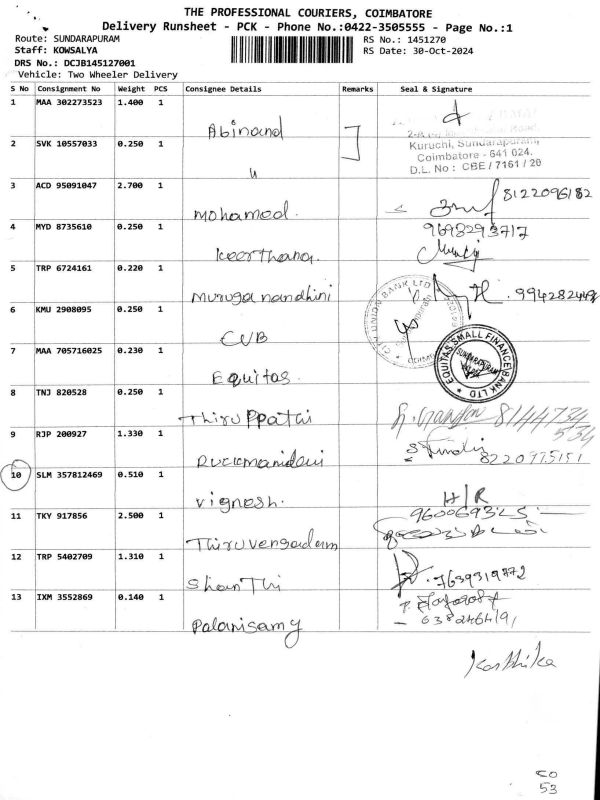 THE PROFESSIONAL COURIERS, COIMBATORE
Delivery Runsheet - PCK - Phone No.:0422-3505555 - Page No.:1
Route: SUNDARAPURAM
RS No.: 1451270
Staff: KOWSALYA
RS Date: 30-Oct-2024
DRS No.: DCJB145127001
Vehicle: Two Wheeler Delivery
S No Consignment No Weight PCS Consignee Details Remarks Seal & Signature
1 MAA 302273523 1.400 1 Abinand
Kuruchi, Sundarapuram,
Coimbatore - 641 024.
D.L. No : CBE / 7161 / 20
2 SVK 10557033 0.250 1 "
3 ACD 95091047 2.700 1 Mohamed. 8122096182
4 MYD 8735610 0.250 1 Keerthana. 9698293717
5 TRP 6724161 0.220 1 Muruganandhini
6 KMU 2908095 0.250 1 CUB CITY UNION BANK LTD
7 MAA 705716025 0.230 1 Equitas EQUITAS SMALL FINANCE BANK LTD SUNDARAPURAM
8 TNJ 820528 0.250 1 Thiruppathi 8144734
534
9 RJP 200927 1.330 1 8220775151
10 SLM 357812469 0.510 1 Vignesh. H/R
11 TKY 917856 2.500 1 Thiruvengadam
12 TRP 5402709 1.310 1 Shanthi 7639319772
13 IXM 3552869 0.140 1 Palanisamy
Karthika
50
53